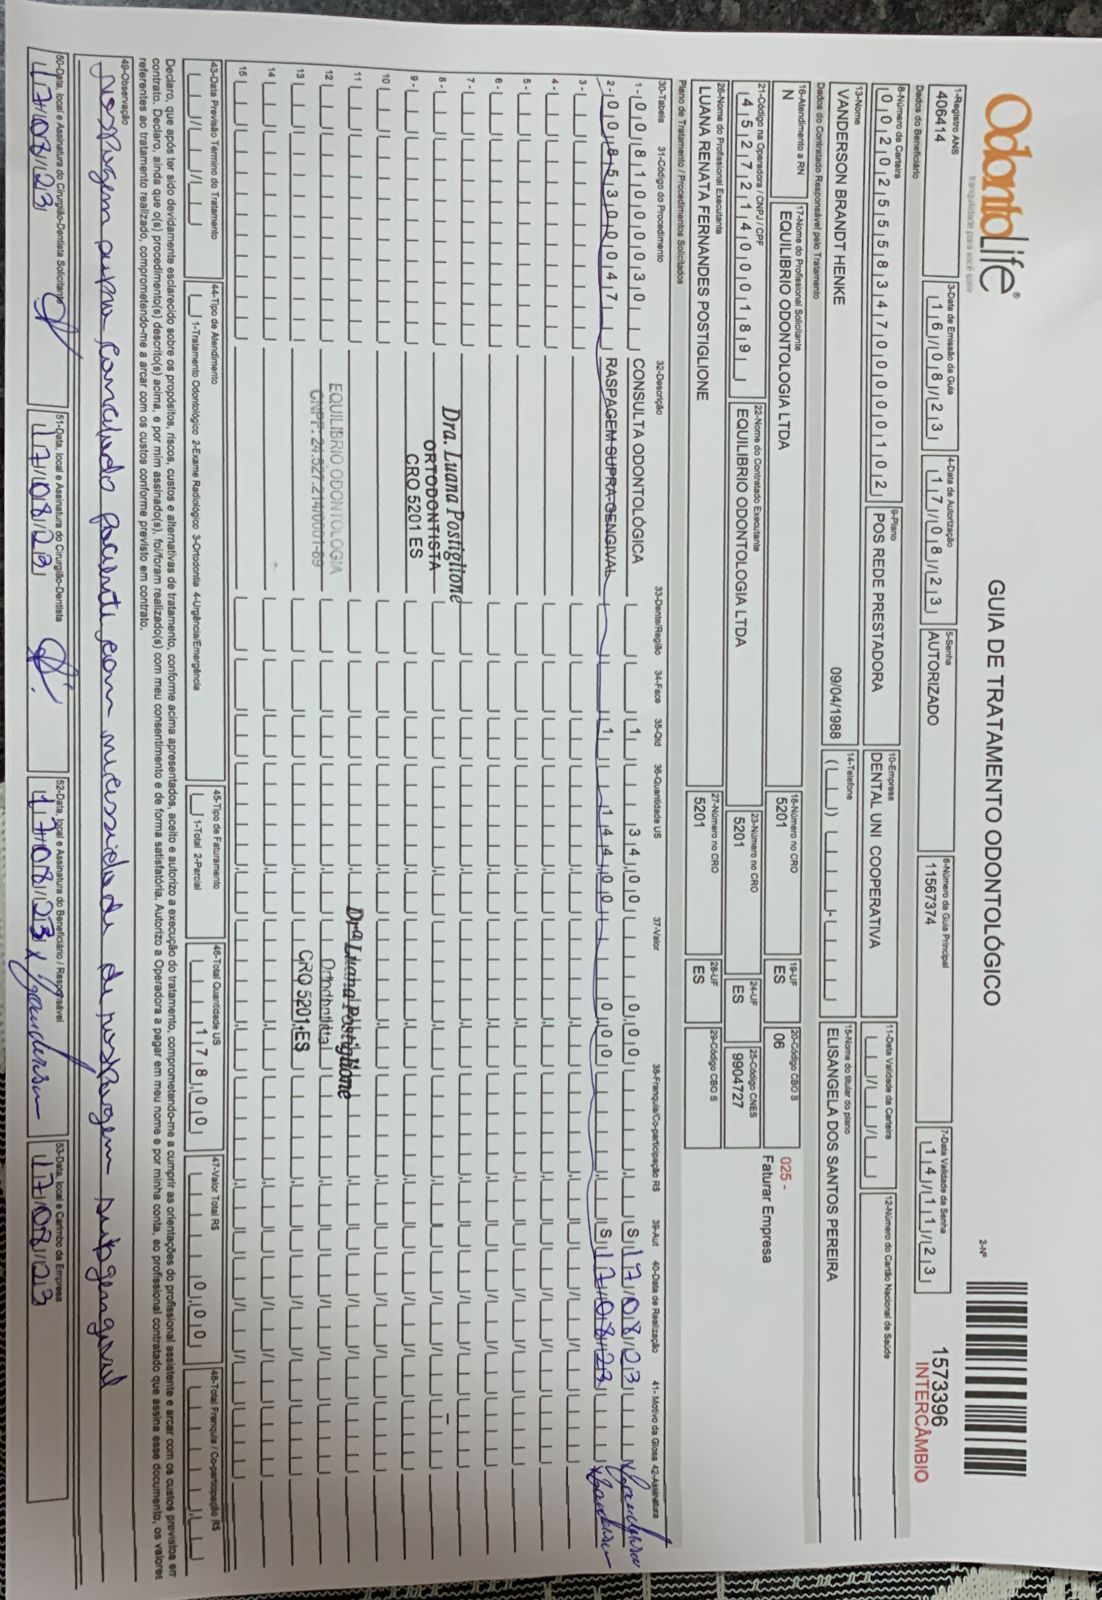 OdontoLife®
tranquilidade para você sorrir
GUIA DE TRATAMENTO ODONTOLÓGICO
2-Nº
1573396
INTERCÂMBIO
1-Registro ANS
406414
3-Data de Emissão da Guia
16/08/23
4-Data de Autorização
17/08/23
5-Senha
AUTORIZADO
6-Número da Guia Principal
11567374
7-Data Validade da Senha
14/11/23
Dados do Beneficiário
8-Número da Carteira
00202555834700000102
9-Plano
POS REDE PRESTADORA
10-Empresa
DENTAL UNI COOPERATIVA
11-Data Validade da Carteira
12-Número do Cartão Nacional de Saúde
13-Nome
VANDERSON BRANDT HENKE
09/04/1988
14-Telefone
15-Nome do titular do plano
ELISANGELA DOS SANTOS PEREIRA
Dados do Contratado Responsável pelo Tratamento
16-Atendimento a RN
N
17-Nome do Profissional Solicitante
EQUILIBRIO ODONTOLOGIA LTDA
18-Número no CRO
5201
19-UF
ES
20-Código CBO S
06
025 -
Faturar Empresa
21-Código na Operadora / CNPJ / CPF
45272140001 89
22-Nome do Contratado Executante
EQUILIBRIO ODONTOLOGIA LTDA
23-Número no CRO
5201
24-UF
ES
25-Código CNES
9904727
26-Nome do Profissional Executante
LUANA RENATA FERNANDES POSTIGLIONE
27-Número no CRO
5201
28-UF
ES
29-Código CBO S
Plano de Tratamento / Procedimentos Solicitados
30-Tabela 31-Código do Procedimento 32-Descrição 33-Dente/Região 34-Face 35-Qtd 36-Quantidade US 37-Valor 38-Franquia/Co-participação R$ 39-Aut 40-Data de Realização 41- Motivo da Glosa 42-Assinatura
1- 00 81000030 CONSULTA ODONTOLÓGICA 1 34,00 0,00 S 17/08/23
2- 00 85300047 RASPAGEM SUPRA-GENGIVAL 1 144,00 0,00 S 17/08/23
3-
4-
5-
6-
7-
8-
9-
10
11
12
13
14
15
Dra. Luana Postiglione
ORTODONTISTA
CRO 5201 ES
EQUILIBRIO ODONTOLOGIA
CNPF: 24.527.214/0001-89
Drª Luana Postiglione
Ortodontista
CRO 5201-ES
43-Data Previsão Término do Tratamento
44-Tipo de Atendimento
1-Tratamento Odontológico 2-Exame Radiológico 3-Ortodontia 4-Urgência/Emergência
45-Tipo de Faturamento
1-Total 2-Parcial
46-Total Quantidade US
178,00
47-Valor Total R$
0,00
48-Total Franquia / Co-participação R$
Declaro, que após ter sido devidamente esclarecido sobre os propósitos, riscos, custos e alternativas de tratamento, conforme acima apresentados, aceito e autorizo a execução do tratamento, comprometendo-me a cumprir as orientações do profissional assistente e arcar com os custos previstos em
contrato. Declaro, ainda que o(s) procedimento(s) descrito(s) acima, e por mim assinado(s), foi/foram realizado(s) com meu consentimento e de forma satisfatória. Autorizo a Operadora a pagar em meu nome e por minha conta, ao profissional contratado que assina esse documento, os valores
referentes ao tratamento realizado, comprometendo-me a arcar com os custos conforme previsto em contrato.
49-Observação
raspagem supra cancelado paciente com necessidade de raspagem subgengival
50-Data, local e Assinatura do Cirurgião-Dentista Solicitante
17/08/23
51-Data, local e Assinatura do Cirurgião-Dentista
17/08/23
52-Data, local e Assinatura do Beneficiário / Responsável
17/08/23 x Vanderson
53-Data, local e Carimbo da Empresa
17/08/23